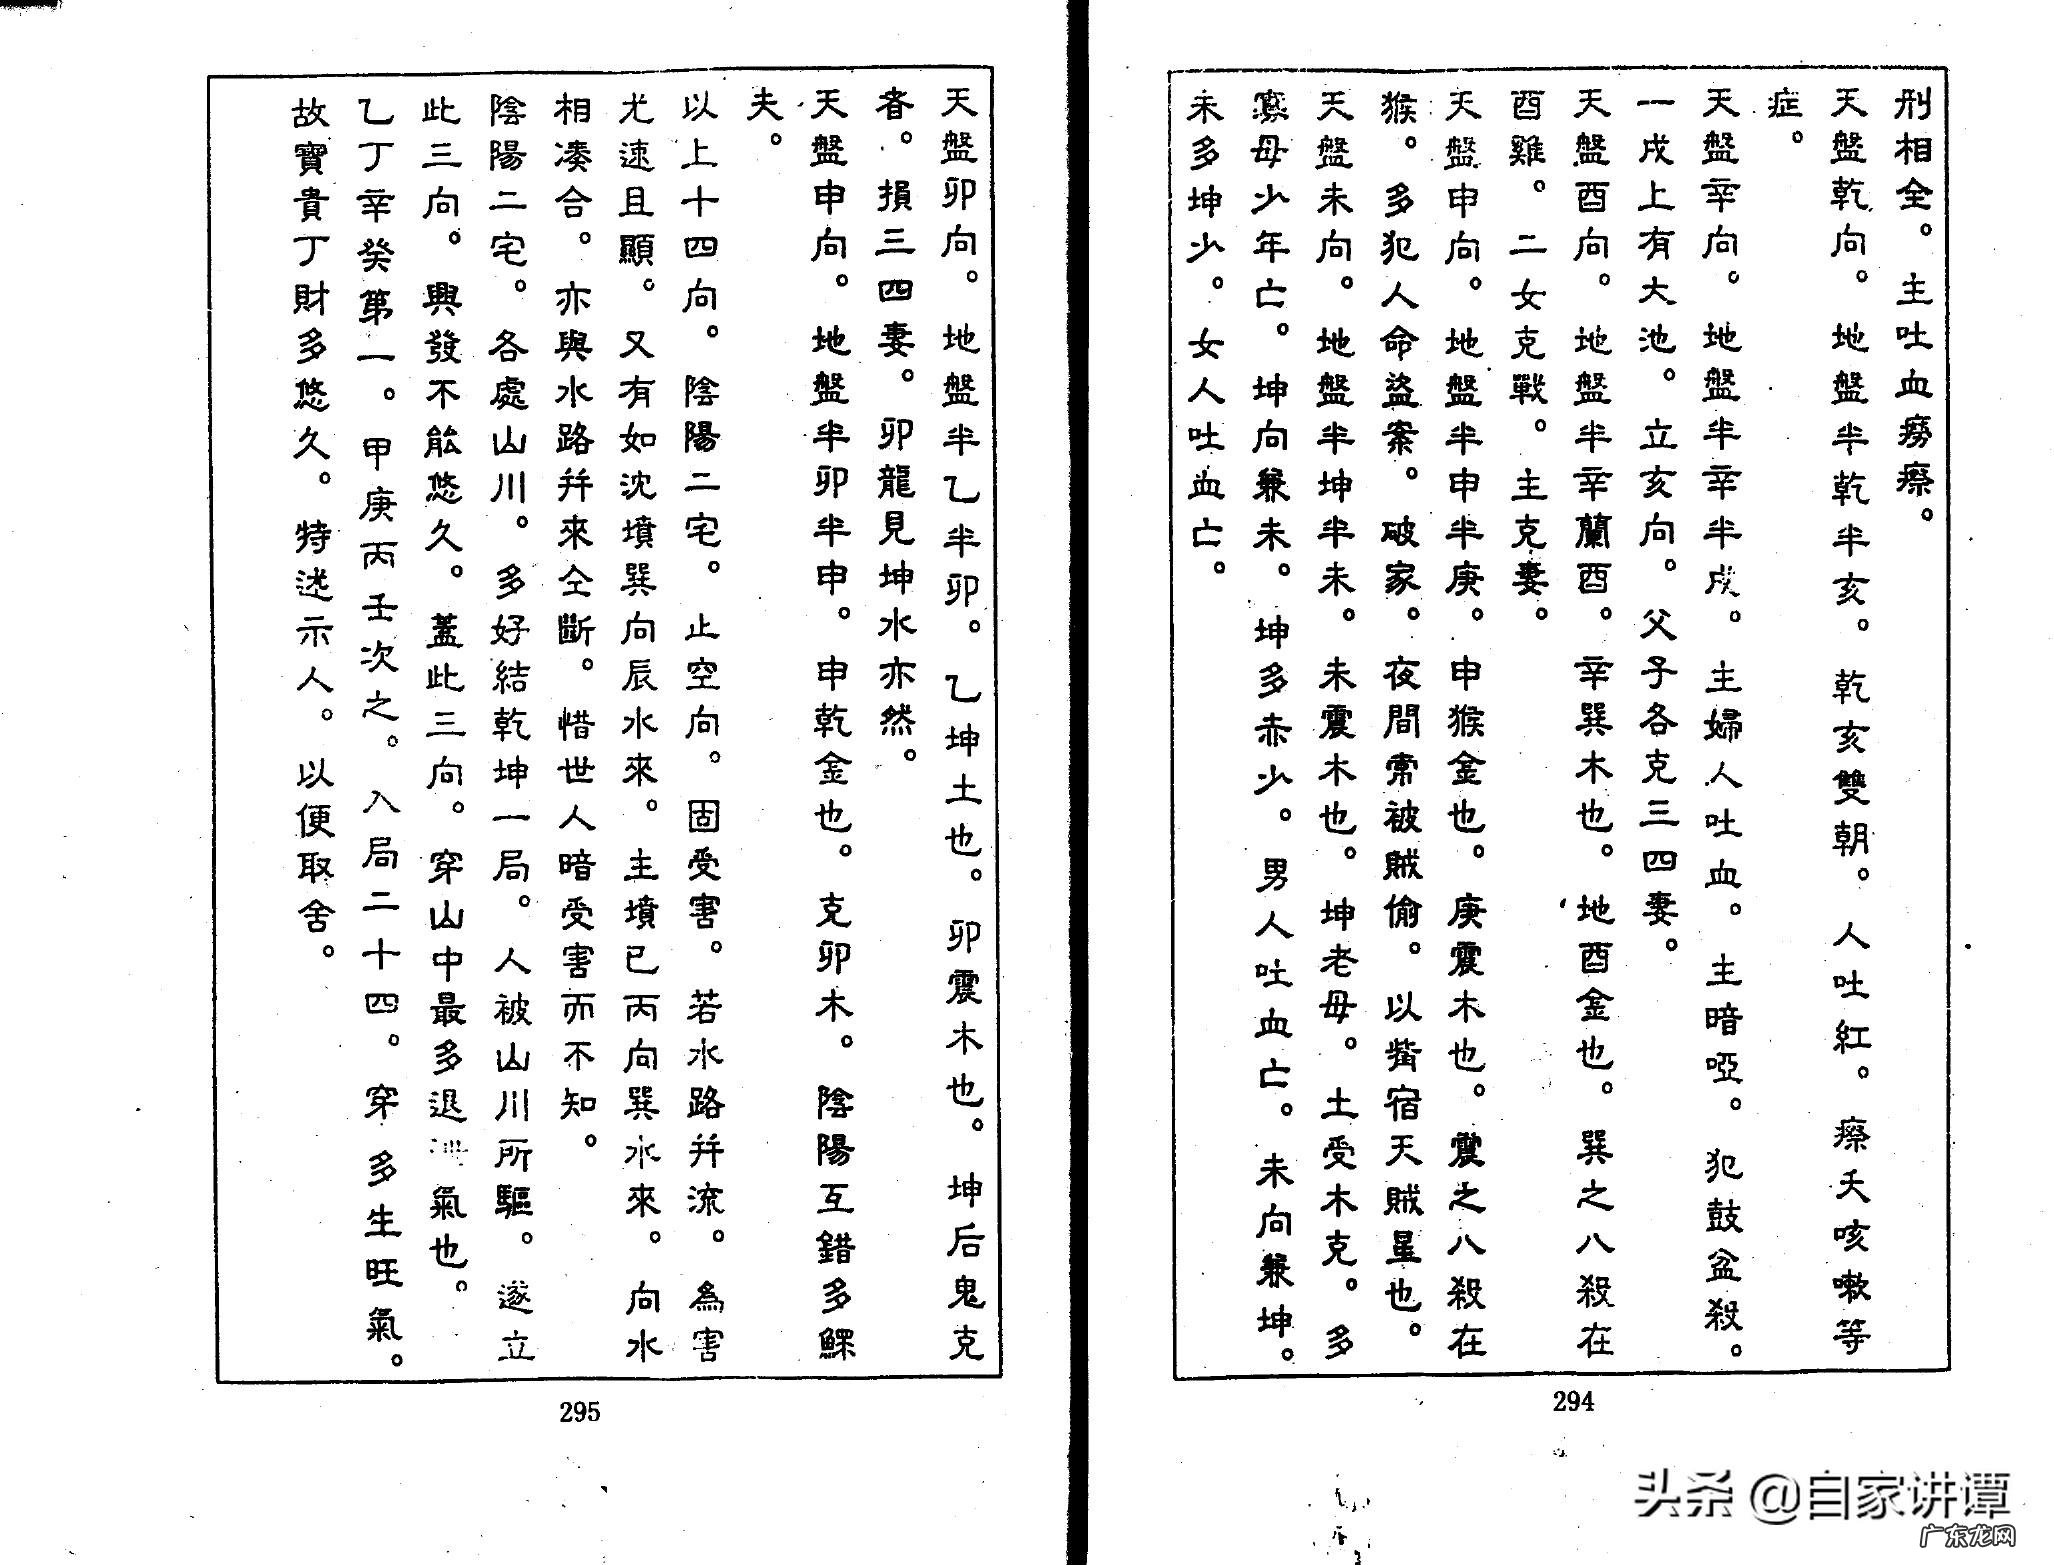 刑相全。主吐血癆瘵。
天盤乾向。地盤半乾半亥。乾亥雙朝。人吐紅。瘵夭咳嗽等
症。
天盤辛向。地盤半辛半戌。主婦人吐血。主暗啞。犯鼓盆殺。
一戌上有大池。立亥向。父子各克三四妻。
天盤酉向。地盤半辛蘭酉。辛巽木也。地酉金也。巽之八殺在
酉雞。二女克戰。主克妻。
天盤申向。地盤半申半庚。申猴金也。庚震木也。震之八殺在
猴。多犯人命盜案。破家。夜間常被賊偷。以觜宿天賊星也。
天盤未向。地盤半坤半未。未震木也。坤老母。土受木克。多
寡母少年亡。坤向兼未。坤多赤少。男人吐血亡。未向兼坤。
未多坤少。女人吐血亡。
294
天盤卯向。地盤半乙半卯。乙坤土也。卯震木也。坤后鬼克
者。損三四妻。卯龍見坤水亦然。
天盤申向。地盤半卯半申。申乾金也。克卯木。陰陽互錯多鰥
夫。
以上十四向。陰陽二宅。止空向。固受害。若水路并流。為害
尤速且顯。又有如沈墳巽向辰水來。主墳已丙向巽水來。向水
相湊合。亦與水路并來仝斷。惜世人暗受害而不知。
陰陽二宅。各處山川。多好結乾坤一局。人被山川所驅。遂立
此三向。興發不能悠久。蓋此三向。穿山中最多退氣也。
乙丁辛癸第一。甲庚丙壬次之。入局二十四。穿多生旺氣。
故寶貴丁財多悠久。特述示人。以便取舍。
295
头条 @自家讲谭
广东龙网